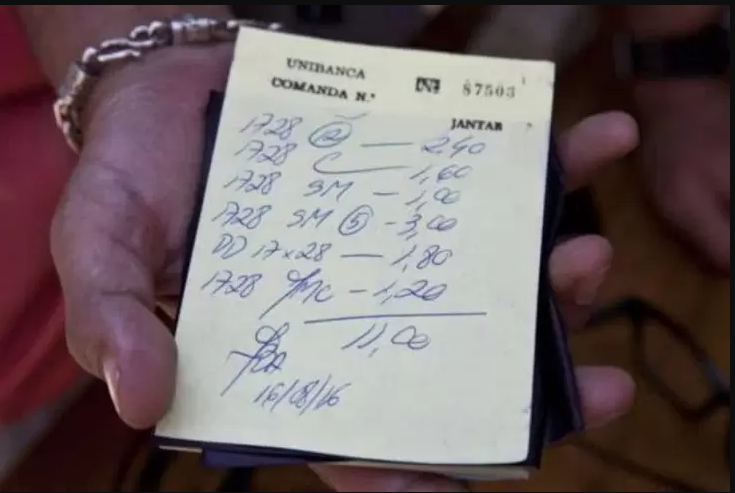 UNIBANCA
COMANDA N.º Nº 87503
JANTAR
1728 (12) — 2,40
1728 C — 1,60
1728 SM – 1,00
1728 SM (5) – 3,00
DD 17x28 — 1,80
1728 MC – 1,20
11,00
16/08/16